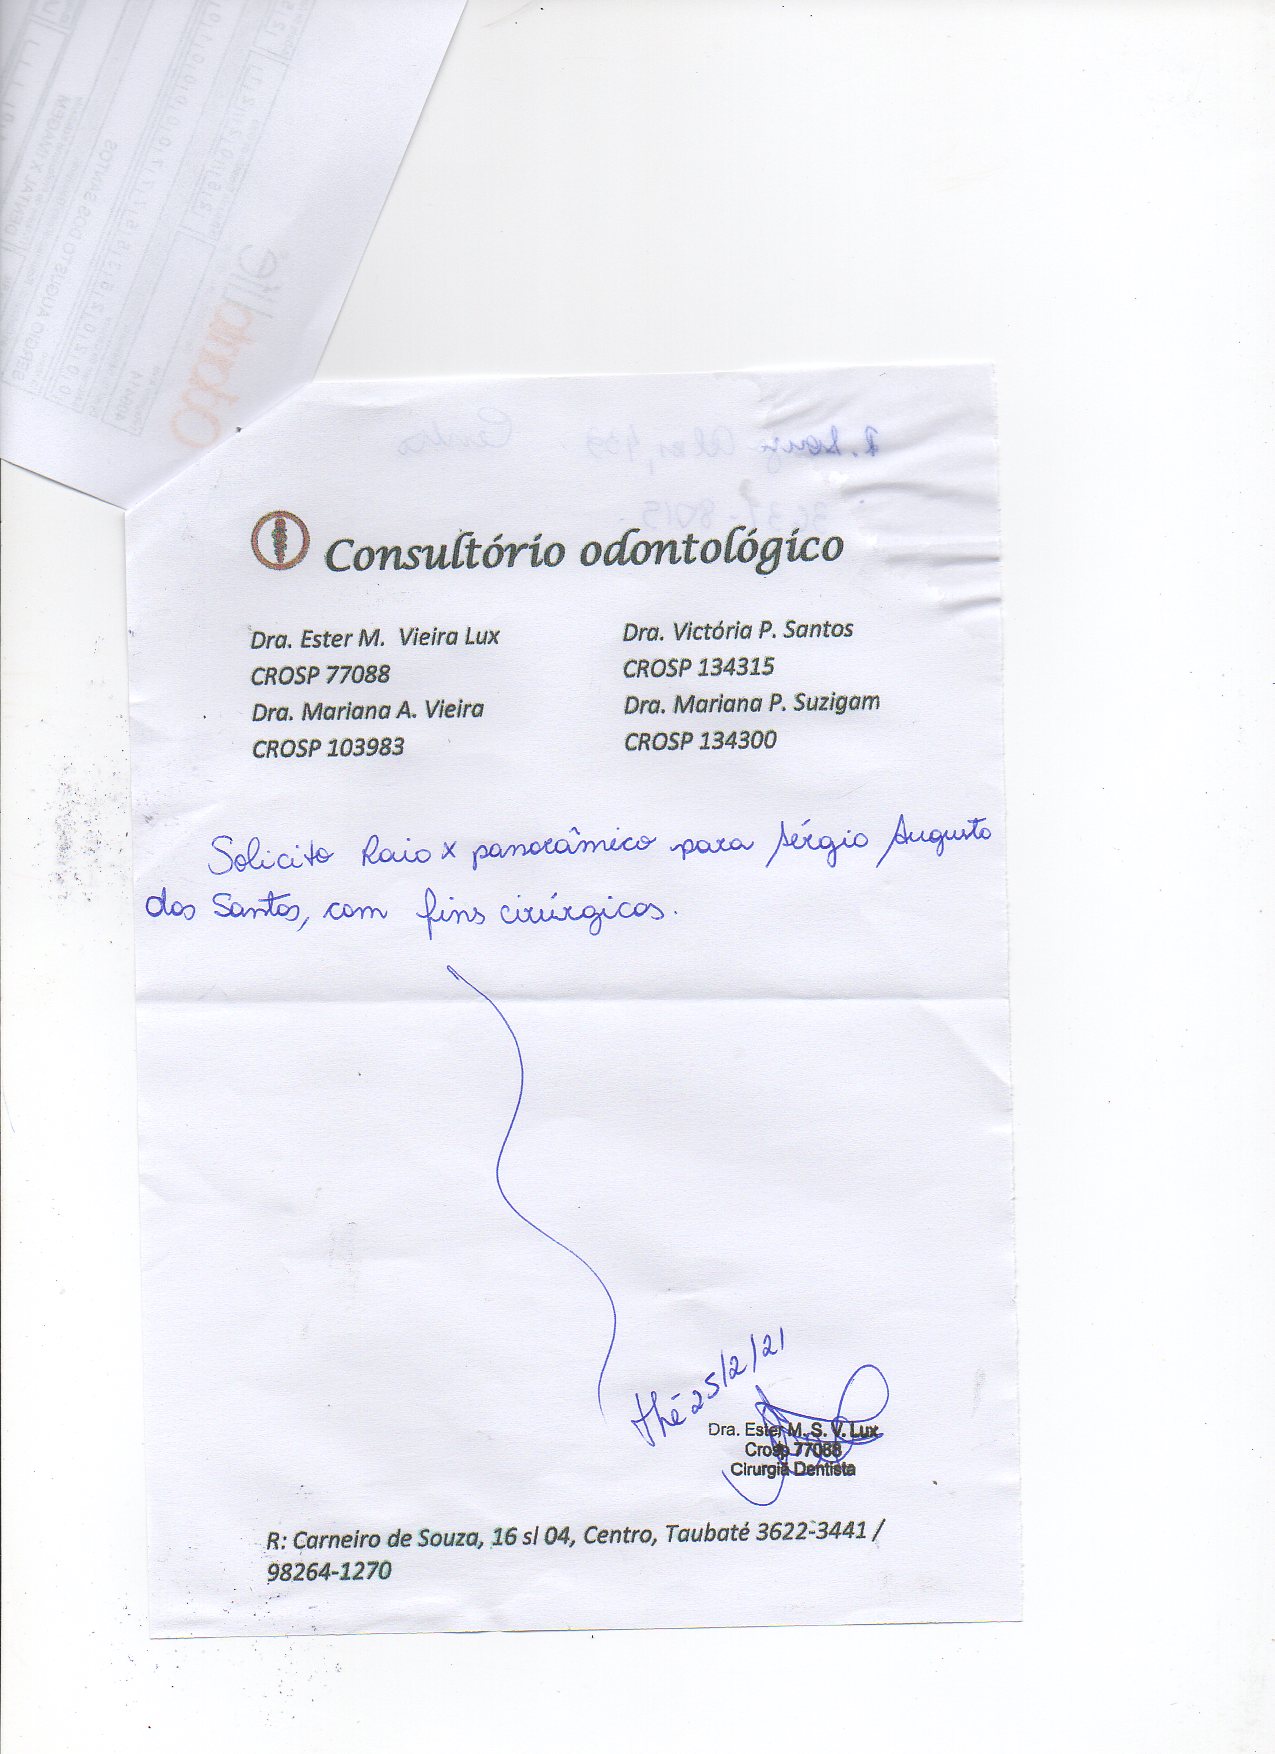 Consultório odontológico
Dra. Ester M. Vieira Lux
CROSP 77088
Dra. Mariana A. Vieira
CROSP 103983
Dra. Victória P. Santos
CROSP 134315
Dra. Mariana P. Suzigam
CROSP 134300
Solicito Raio x panorâmico para Sérgio Augusto
dos Santos, com fins cirúrgicos.
25/2/21
Dra. Ester M. S. V. Lux
Crosp 77088
Cirurgiã Dentista
R: Carneiro de Souza, 16 sl 04, Centro, Taubaté 3622-3441 /
98264-1270